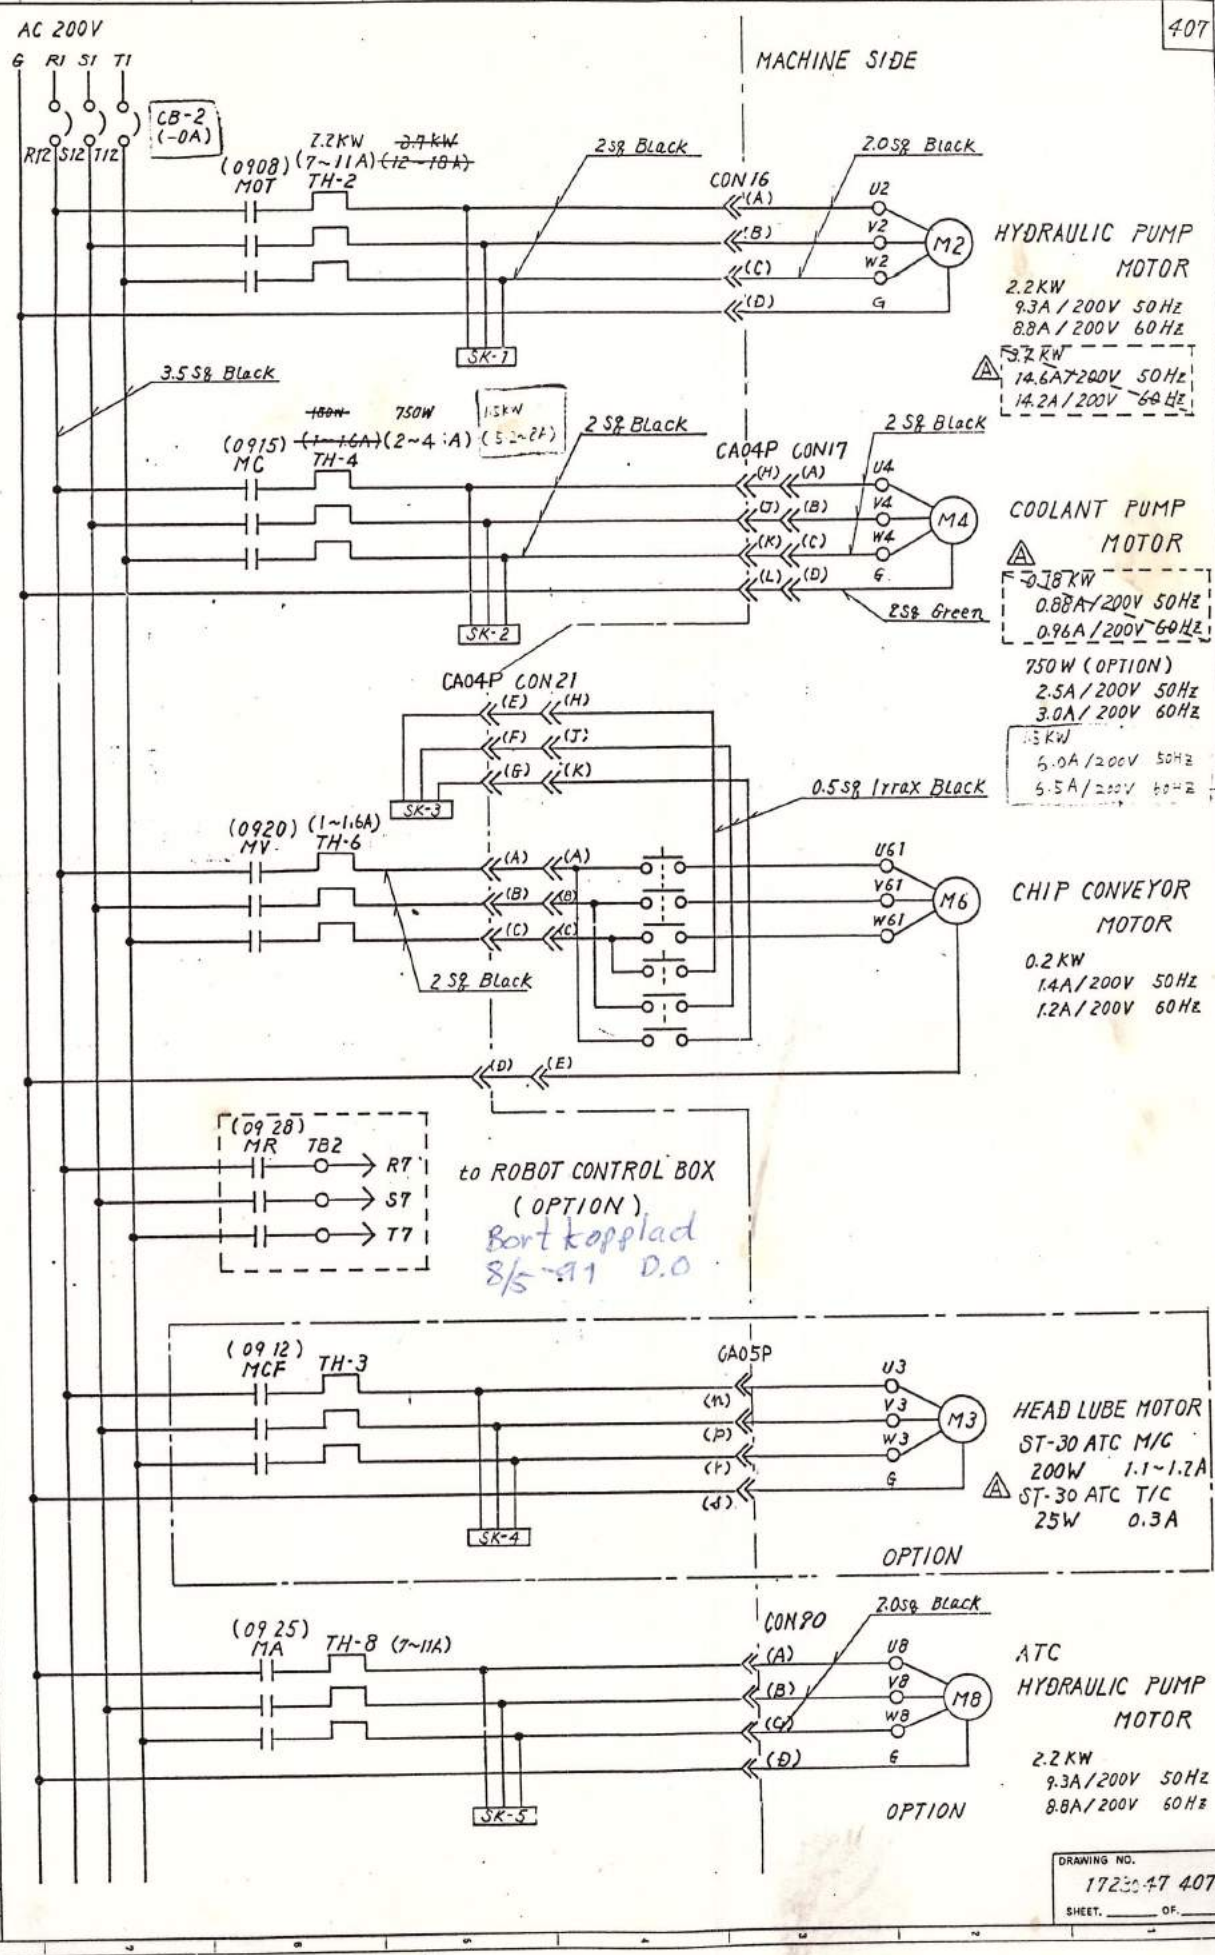 AC 200V
407
G R1 S1 T1
MACHINE SIDE
CB-2
R12 S12 T12
2.2KW 3.7KW
(0908) (7~11A) (12~18A)
MOT TH-2
2sq Black
2.0sq Black
CON16
(A) U2
(B) V2
(C) W2
(D) G
M2
HYDRAULIC PUMP
MOTOR
2.2KW
9.3A/200V 50Hz
8.8A/200V 60Hz
SK-1
A 3.7KW
14.6A/200V 50Hz
14.2A/200V 60Hz
3.5sq Black
180W 750W 1.5KW
(0915) (1~1.6A) (2~4A)
MC TH-4
2sq Black
2sq Black
CA04P CON17
(H) (A) U4
(J) (B) V4
(K) (C) W4
(L) (D) G
M4
COOLANT PUMP
MOTOR
A
0.18KW
0.88A/200V 50Hz
0.96A/200V 60Hz
2sq Green
SK-2
750W (OPTION)
2.5A/200V 50Hz
3.0A/200V 60Hz
1.5KW
6.0A/200V 50Hz
60Hz
CA04P CON21
(E) (H)
(F) (J)
(G) (K)
SK-3
0.5sq Irrax Black
(0920) (1~1.6A)
MV TH-6
(A) (A) U61
(B) (B) V61
(C) (C) W61
M6
CHIP CONVEYOR
MOTOR
0.2KW
1.4A/200V 50Hz
1.2A/200V 60Hz
2sq Black
(D) (E)
(0928)
MR TB2
R7
S7
T7
to ROBOT CONTROL BOX
(OPTION)
Bortkopplad
8/5-91 D.O
(0912)
MCF TH-3
CA05P
(n) U3
(p) V3
(r) W3
(s) G
M3
HEAD LUBE MOTOR
ST-30 ATC M/C
200W 1.1~1.2A
A ST-30 ATC T/C
25W 0.3A
SK-4
OPTION
(0925)
MA TH-8 (7~11A)
2.0sq Black
CON90
(A) U8
(B) V8
(C) W8
(D) G
M8
ATC
HYDRAULIC PUMP
MOTOR
2.2KW
9.3A/200V 50Hz
8.8A/200V 60Hz
SK-5
OPTION
DRAWING NO.
407
SHEET. OF.